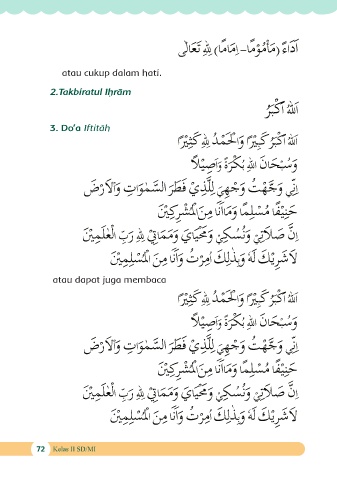 اَدَاءً (مَأْمُوْمًا – اِمَامًا) لِلّٰهِ تَعَالٰى
atau cukup dalam hati.
2.Takbiratul Iḥrām
اَللهُ اَكْبَرُ
3. Do'a Iftitāḥ
اَللهُ اَكْبَرُ كَبِيْرًا وَالْحَمْدُ لِلّٰهِ كَثِيْرًا
وَسُبْحَانَ اللهِ بُكْرَةً وَاَصِيْلًا
اِنِّيْ وَجَّهْتُ وَجْهِيَ لِلَّذِيْ فَطَرَ السَّمٰوَاتِ وَالْاَرْضَ
حَنِيْفًا مُسْلِمًا وَمَااَنَا مِنَ الْمُشْرِكِيْنَ
اِنَّ صَلَاتِيْ وَنُسُكِيْ وَمَحْيَايَ وَمَمَاتِيْ لِلّٰهِ رَبِّ الْعٰلَمِيْنَ
لَاشَرِيْكَ لَهُ وَبِذٰلِكَ اُمِرْتُ وَاَنَا مِنَ الْمُسْلِمِيْنَ
atau dapat juga membaca
اَللهُ اَكْبَرُ كَبِيْرًا وَالْحَمْدُ لِلّٰهِ كَثِيْرًا
وَسُبْحَانَ اللهِ بُكْرَةً وَاَصِيْلًا
اِنِّيْ وَجَّهْتُ وَجْهِيَ لِلَّذِيْ فَطَرَ السَّمٰوَاتِ وَالْاَرْضَ
حَنِيْفًا مُسْلِمًا وَمَااَنَا مِنَ الْمُشْرِكِيْنَ
اِنَّ صَلَاتِيْ وَنُسُكِيْ وَمَحْيَايَ وَمَمَاتِيْ لِلّٰهِ رَبِّ الْعٰلَمِيْنَ
لَاشَرِيْكَ لَهُ وَبِذٰلِكَ اُمِرْتُ وَاَنَا مِنَ الْمُسْلِمِيْنَ
72 Kelas II SD/MI